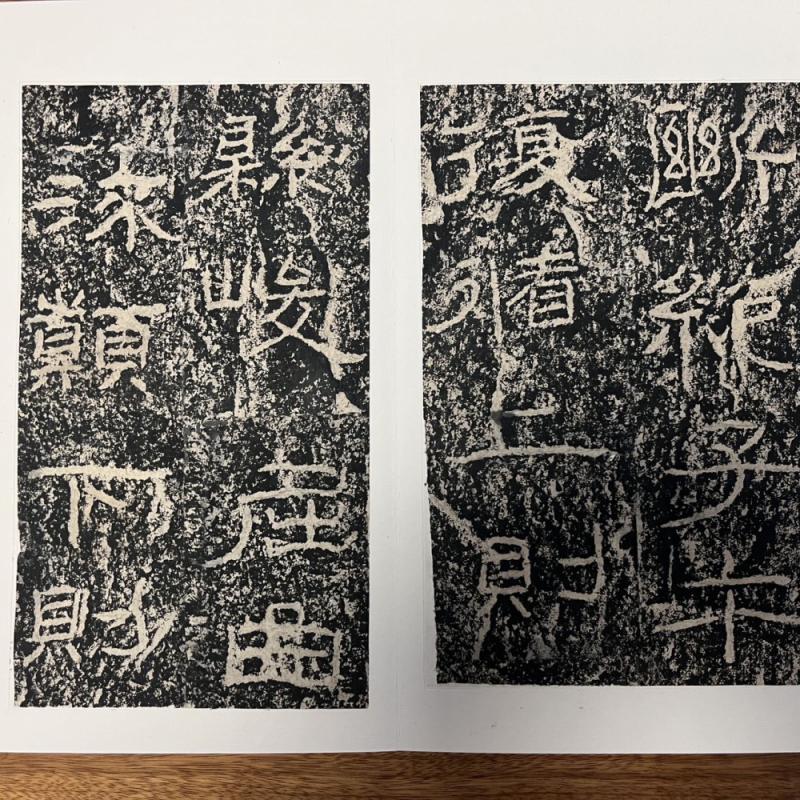 斷絕子午
復循上則
縣峻屈曲
流顛下則